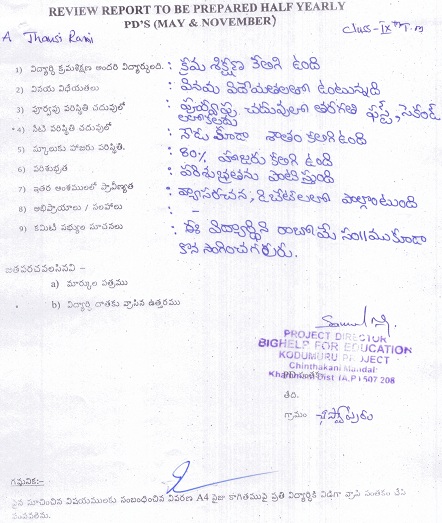 REVIEW REPORT TO BE PREPARED HALF YEARLY
PD'S (MAY & NOVEMBER)
A Jhansi Rani
Class - IX th T.m
1) విద్యార్థి క్రమశిక్షణ అందరి విద్యార్థులది. : క్రమ శిక్షణ కలిగి ఉంది
2) వినయ విధేయతలు : వినయ విధేయతలలో ఉంటున్నది
3) పూర్వపు పరిస్థితి చదువులో : చదువులో తరగతి ఫస్ట్, సెకండ్
*4) నేటి పరిస్థితి చదువులో : నేడు కూడా శాతం కలిగి ఉంది
5) స్కూలుకు హాజరు పరిస్థితి. : 80% హాజరు కలిగి ఉంది
6) పరిశుభ్రత : పరిశుభ్రతను పాటిస్తుంది
7) ఇతర అంశములలో ప్రావీణ్యత : వ్యాసరచన, డిబేట్లలలో పాల్గొంటుంది
8) అభిప్రాయాలు / సలహాలు : -
9) కమిటి సభ్యుల సూచనలు : ఈ విద్యార్థిని రాబోయే సం॥ముకూడా
కొన సాగించగలరు.
జతపరచవలసినవి :-
a) మార్కుల పత్రము
* b) విద్యార్థి దాతకు వ్రాసిన ఉత్తరము
PROJECT DIRECTOR
BIGHELP FOR EDUCATION
KODUMURU PROJECT
Chinthakani Mandal
Khammam Dist (A.P) 507 208
తేది.
గ్రామం
గమనిక:-
పైన సూచించిన విషయములకు సంబంధించిన వివరణ A4 సైజు కాగితముపై ప్రతి విద్యార్థికి విడిగా వ్రాసి సంతకం చేసి
పంపవలెను.